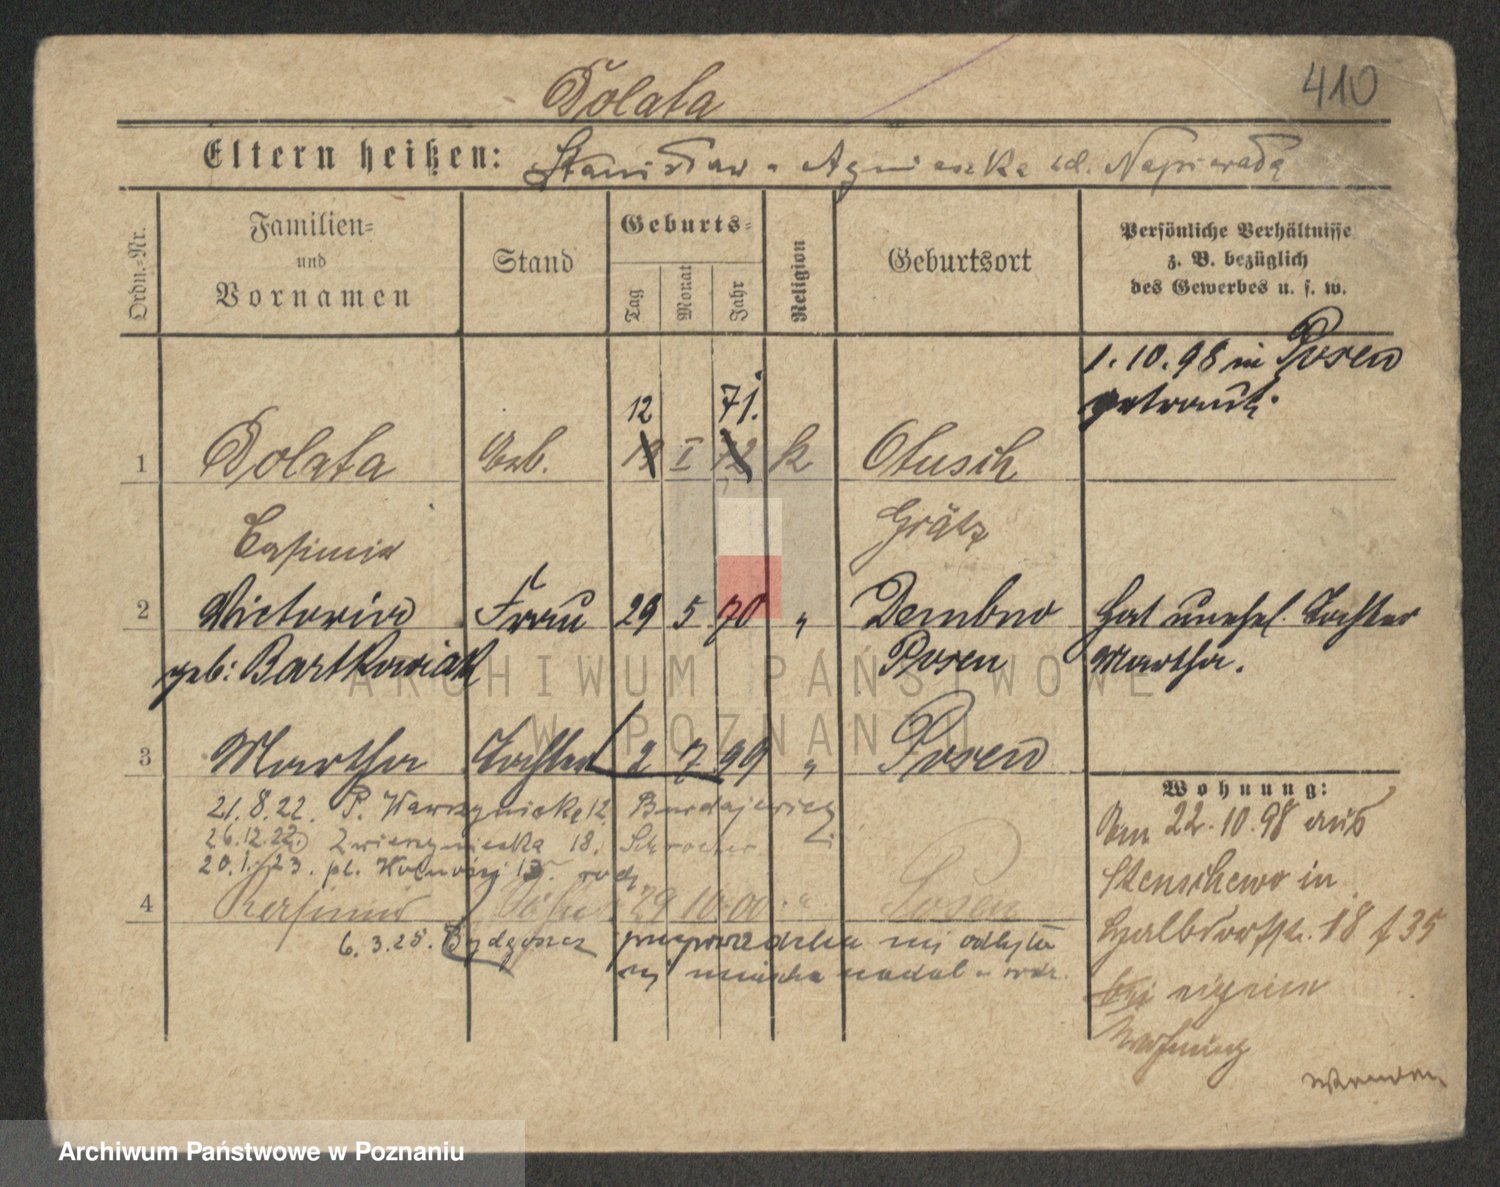 410
Dolata
Eltern heißen: Stanisław u Agnieszka zd. Napierała
Ordn.-Nr.
Familien-
und
Vornamen
Stand
Geburts-
Tag
Monat
Jahr
Religion
Geburtsort
Persönliche Verhältnisse
z. B. bezüglich
des Gewerbes u. s. w.
1.10.98 in Posen
getraut.
12 71.
1 Dolata Arb. I 72 k Otusch
Casimir Grätz
2 Victoria Frau 29 5 70 " Dembno Hat unehel. Tochter
geb: Bartkowiak Posen Martha.
3 Martha Tochter 2 7 99 " Posen
Wohnung:
21.8.22. P. Wawrzyniaka 12. Burdajewicz
26.12.22 Zwierzyniecka 18.
20.1.23. pl.
4 Kasimir Sohn 29 10 00 " Posen
6.3.25. Bydgoszcz
Am 22.10.98 aus
Stenschewo in
Halbdorfstr. 18
bei eigene
Wohnung
Wenden
ARCHIWUM PAŃSTWOWE
W POZNANIU
Archiwum Państwowe w Poznaniu